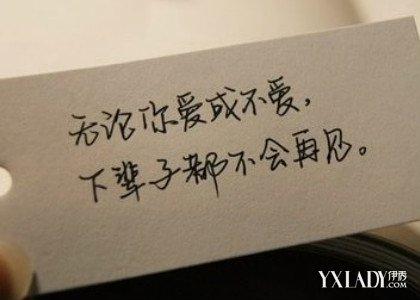 无论你爱或不爱，
下辈子都不会再见。
YXLADY伊秀
.COM